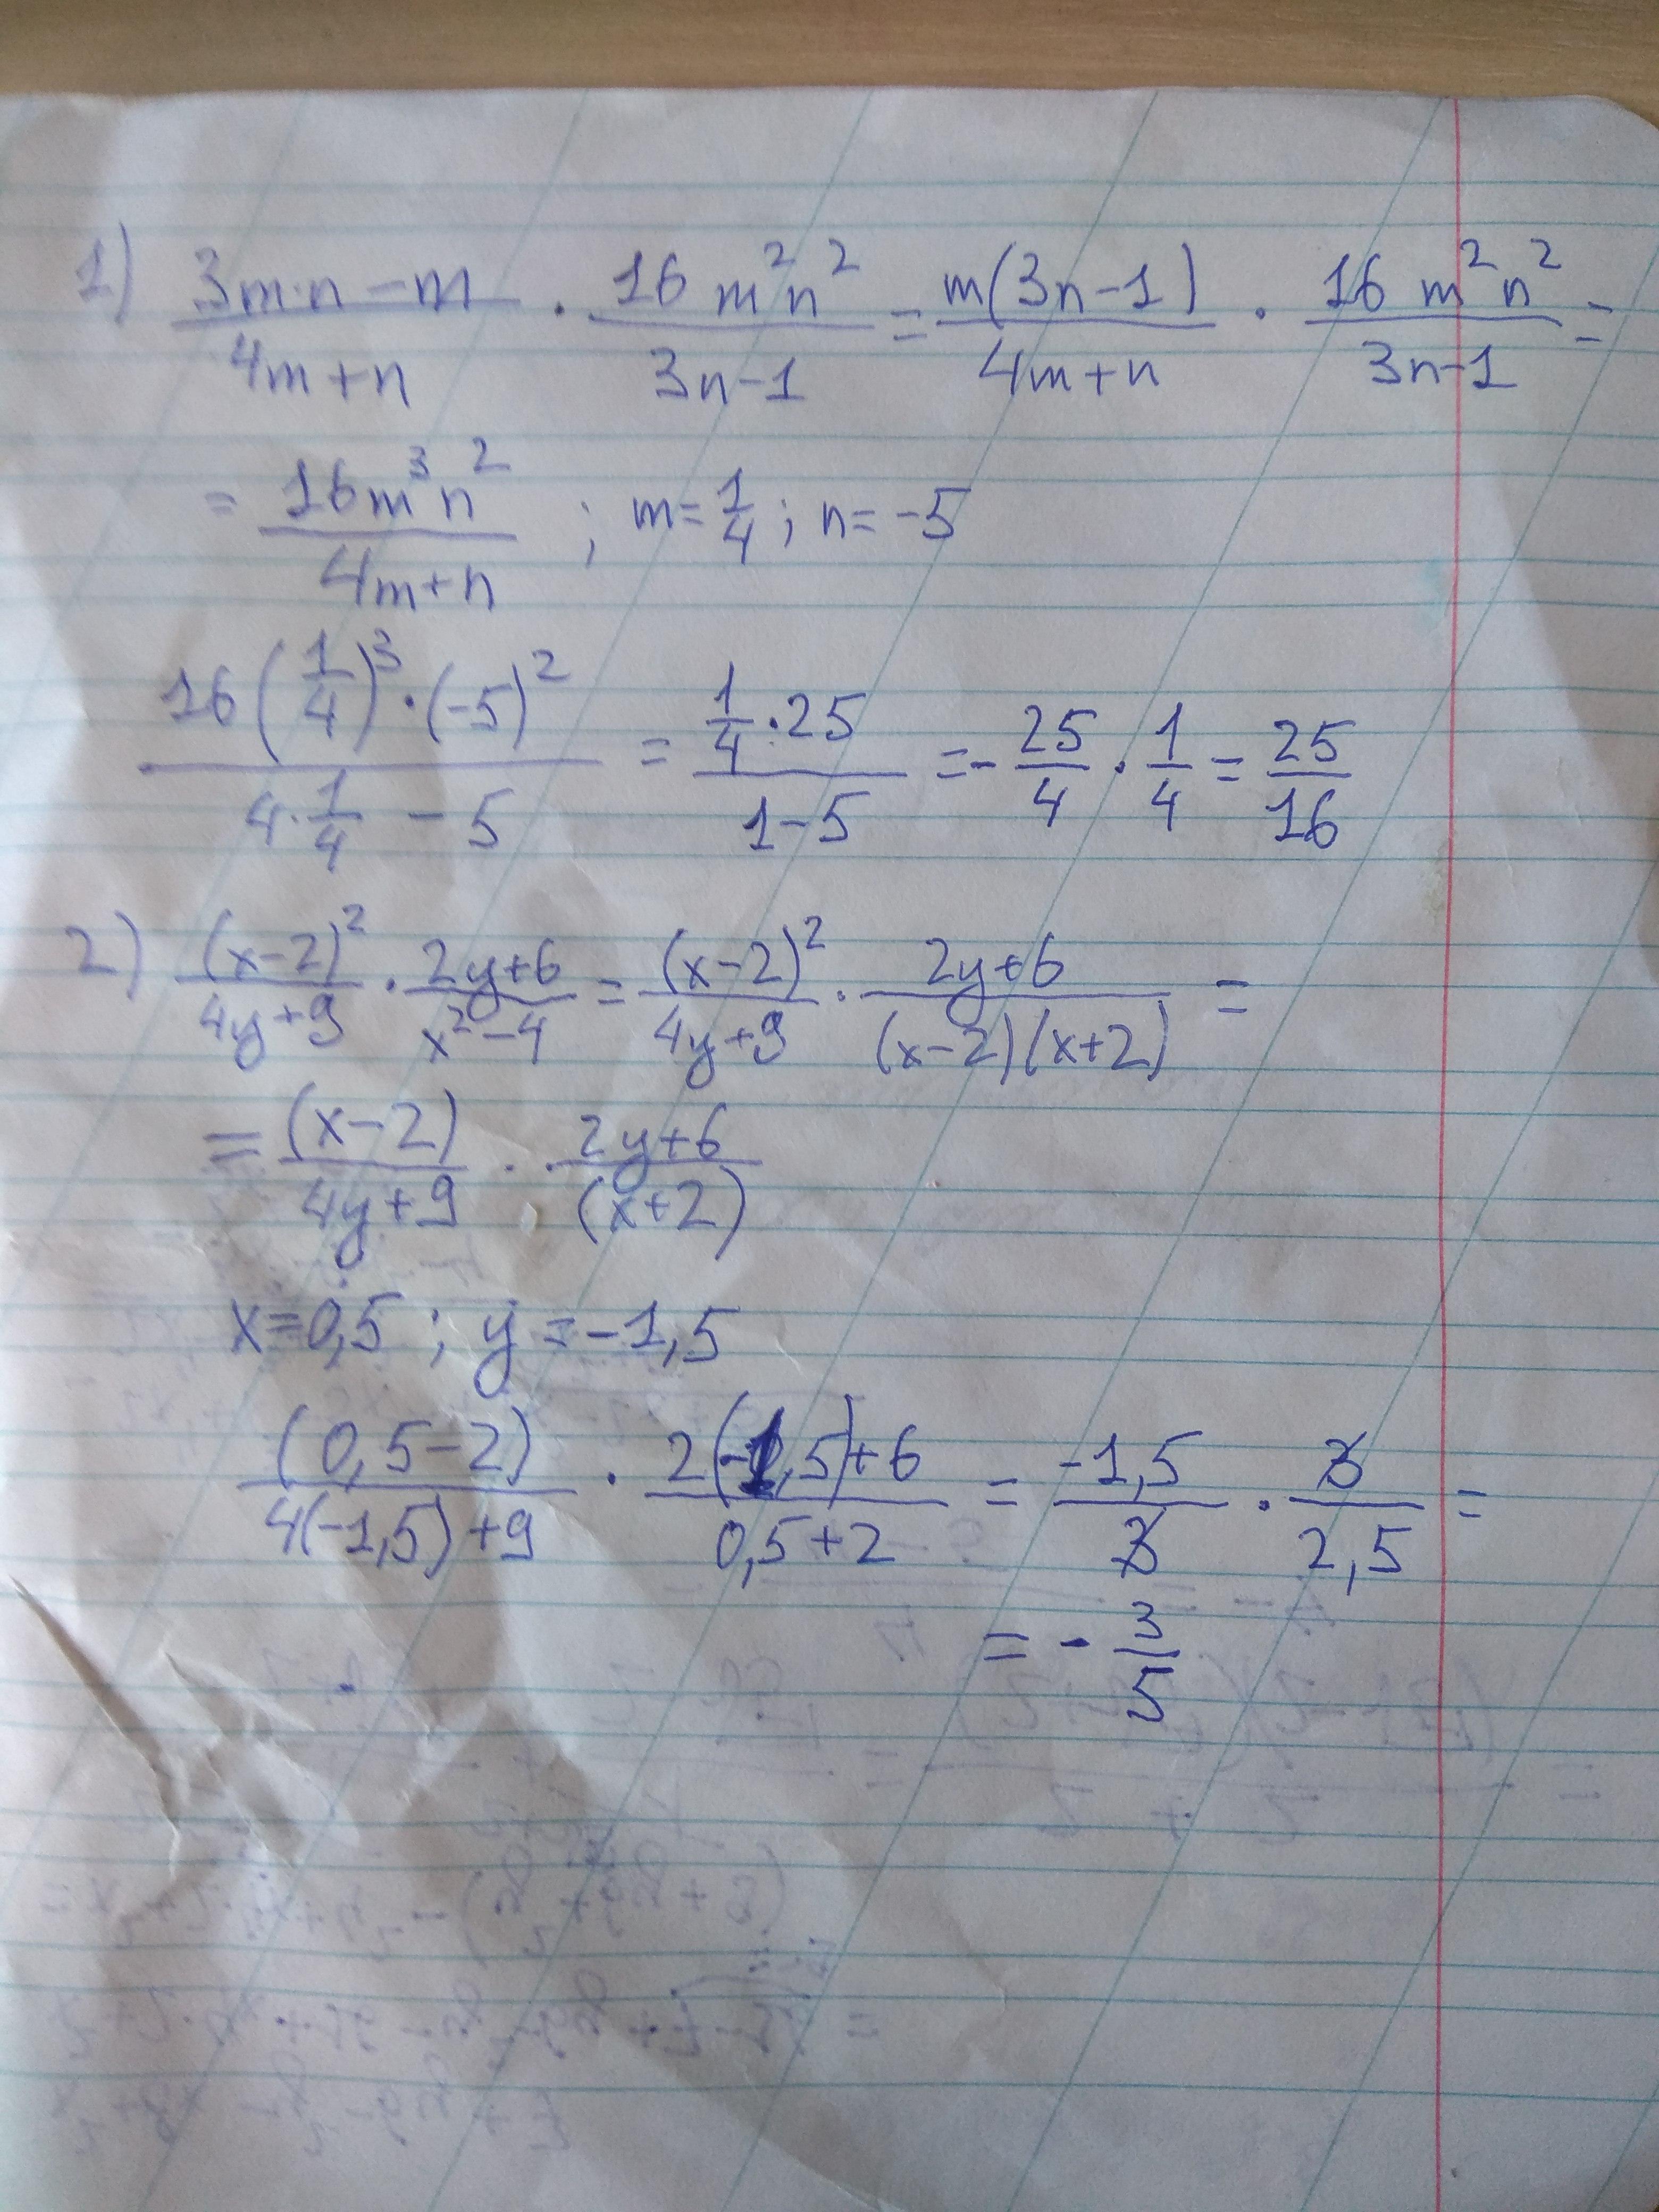 1) (3m·n-m)/(4m+n) · (16m²n²)/(3n-1) = (m(3n-1))/(4m+n) · (16m²n²)/(3n-1) =
= (16m³n²)/(4m+n) ; m=1/4 ; n=-5
(16(1/4)³·(-5)²)/(4·1/4 - 5) = (1/4·25)/(1-5) = -25/4 · 1/4 = 25/16
2) (x-2)²/(4y+9) · (2y+6)/(x²-4) = (x-2)²/(4y+9) · (2y+6)/((x-2)(x+2)) =
= (x-2)/(4y+9) · · (2y+6)/(x+2)
x=0,5 ; y=-1,5
(0,5-2)/(4(-1,5)+9) · (2(-1,5)+6)/(0,5+2) = -1,5/3 · 3/2,5 =
= - 3/5